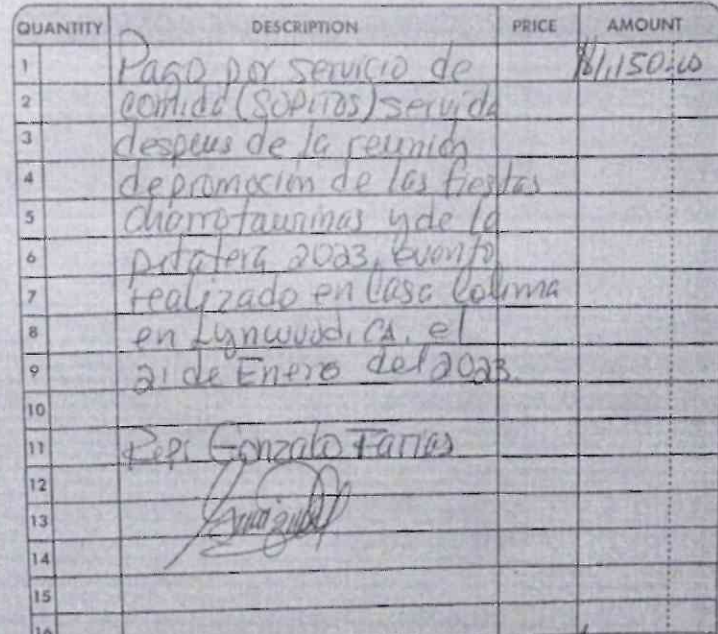 QUANTITY DESCRIPTION PRICE AMOUNT
1 Pago por servicio de $1,150.00
2 comida (SOPITOS) servida
3 despues de la reunión
4 de promoción de las fiestas
5 charrotaurinas y de la
6 petatera 2023, evento
7 realizado en Casa Colima
8 en Lynwood, CA. el
9 21 de Enero del 2023.
10
11 Gonzalo Farias
12
13
14
15
16